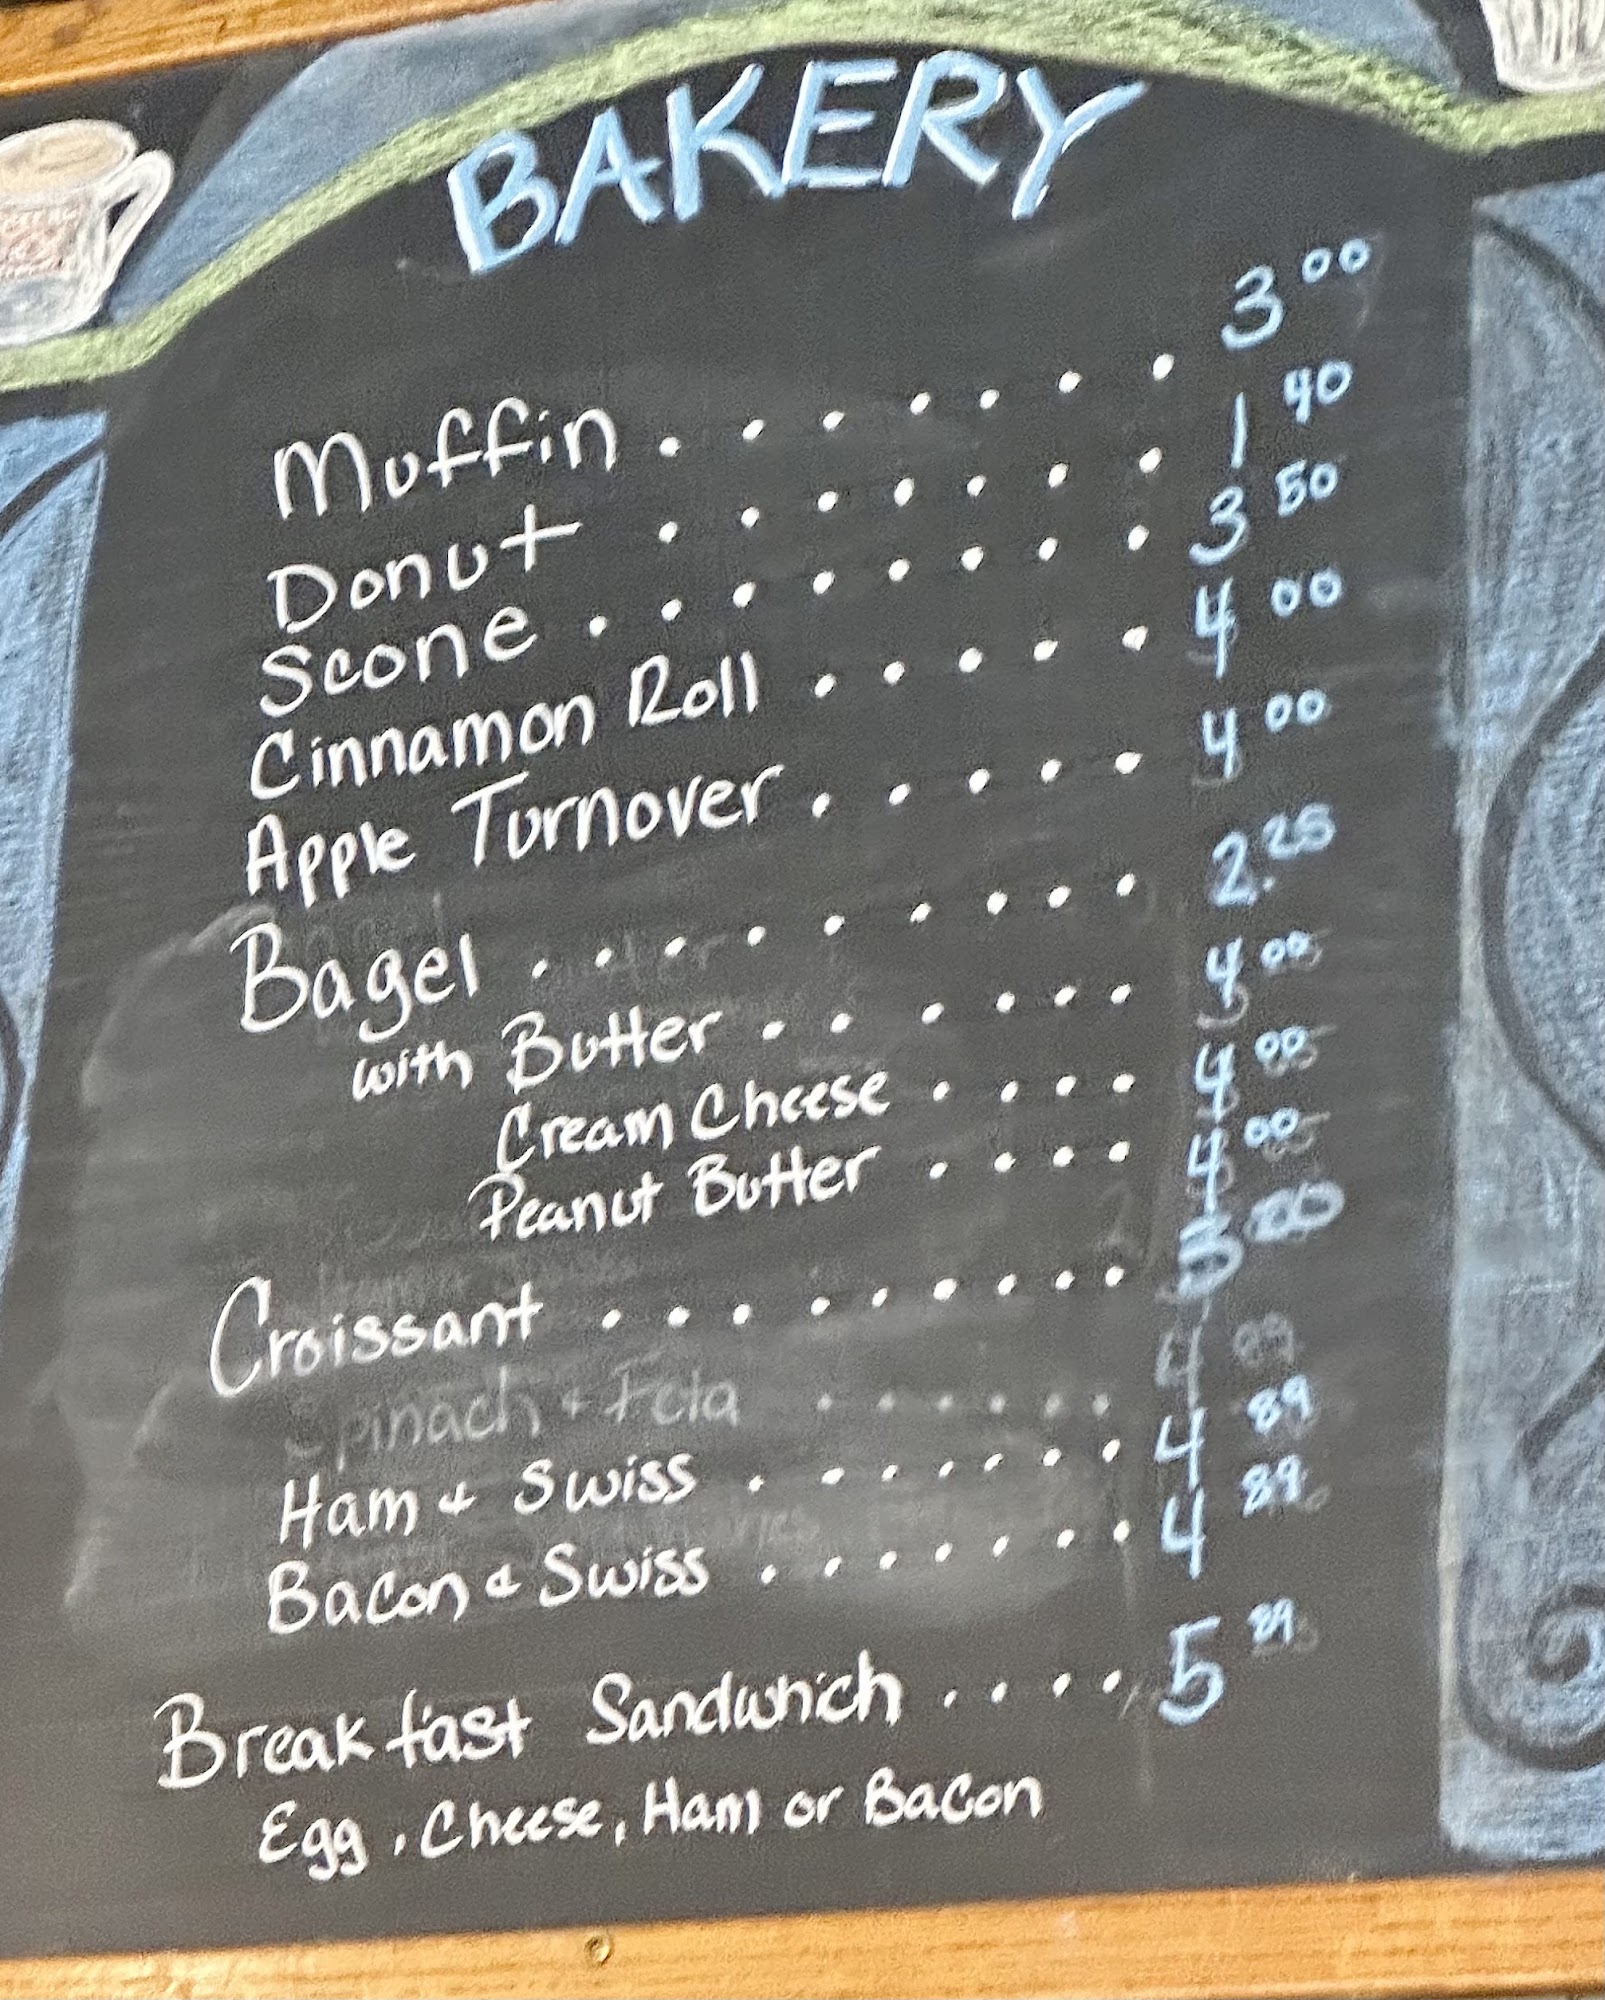 BAKERY
Muffin . . . . . . . 3 00
Donut . . . . . . . 1 40
Scone . . . . . . . . 3 50
Cinnamon Roll . . . . . 4 00
Apple Turnover . . . . . 4 00
Bagel . . . . . . . . . 2.25
with Butter . . . . . . 4 00
Cream Cheese . . . . 4 00
Peanut Butter . . . . 4 00
Croissant . . . . . . . . . 3 00
Spinach & Feta . . . . . . 4
Ham & Swiss . . . . . . . 4 89
Bacon & Swiss . . . . . . . 4 89
Breakfast Sandwhich . . . . 5 89
Egg, Cheese, Ham or Bacon